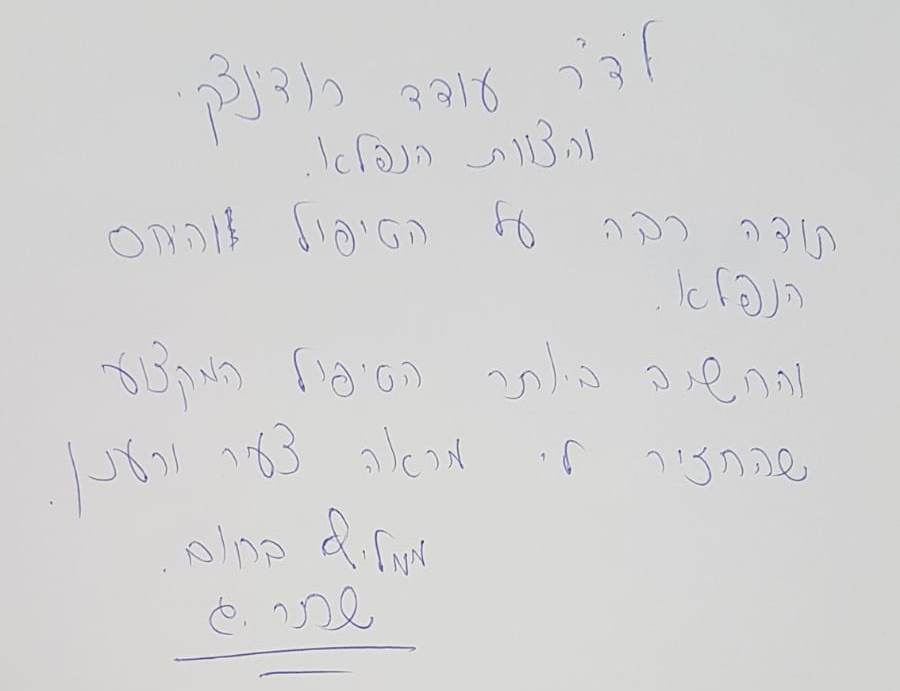 לד"ר עודד רודינצקי.
והצוות הנפלא.
תודה רבה על הטיפול והיחס
הנפלא.
והחשוב ביותר הטיפול המקצועי
שהחזיר לי מראה צעיר ורענן.
ממליצה בחום.
אסתר .פ